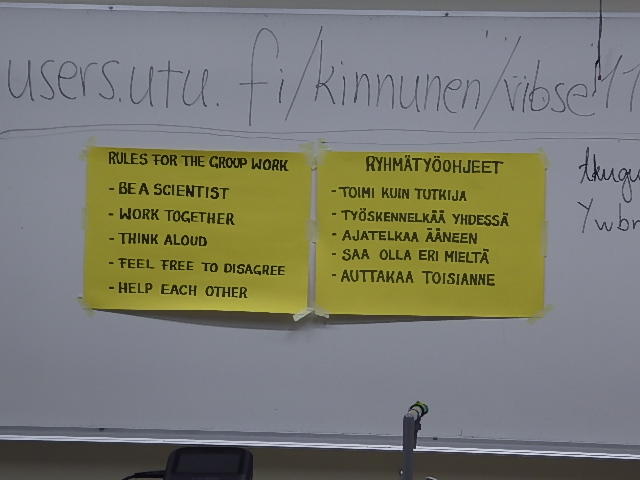 users.utu.fi/kinnunen/vibse11
RULES FOR THE GROUP WORK
- BE A SCIENTIST
- WORK TOGETHER
- THINK ALOUD
- FEEL FREE TO DISAGREE
- HELP EACH OTHER
RYHMÄTYÖOHJEET
- TOIMI KUIN TUTKIJA
- TYÖSKENNELKÄÄ YHDESSÄ
- AJATELKAA ÄÄNEEN
- SAA OLLA ERI MIELTÄ
- AUTTAKAA TOISIANNE